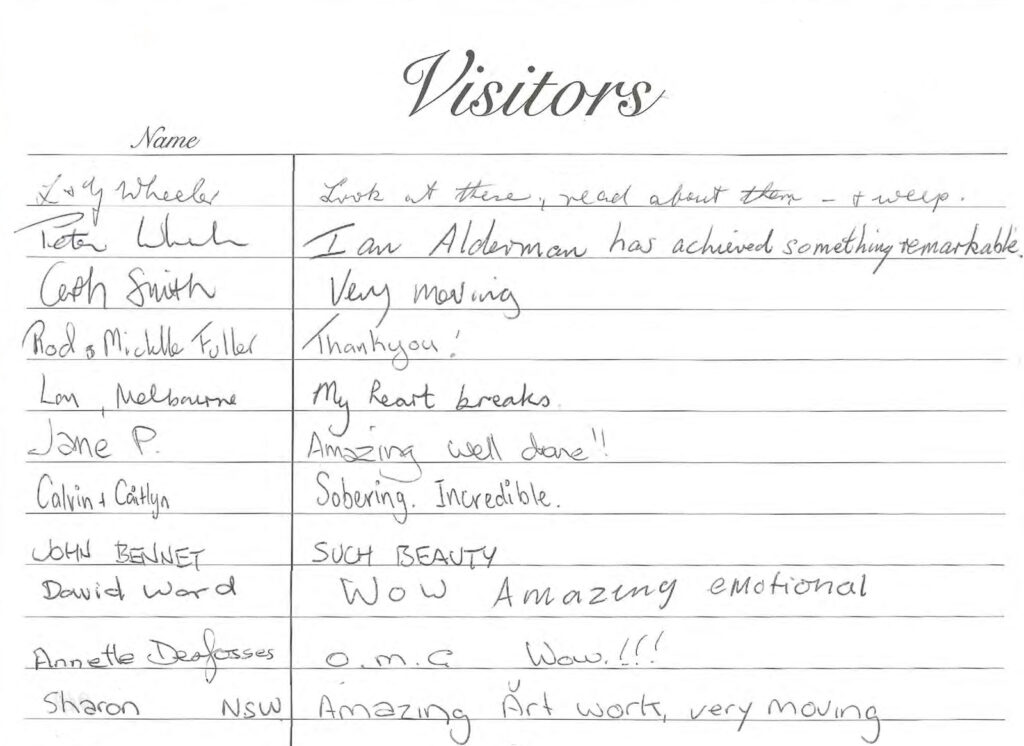 Visitors
Name
Wheeler Look at these, read about them - + weep.
Peter Ian Alderman has achieved something remarkable.
Smith Very moving
Rod & Michelle Fuller Thankyou!
Melbourne My heart breaks.
Jane P. Amazing well done!!
Calvin + Caitlyn Sobering. Incredible.
JOHN BENNET SUCH BEAUTY
David Ward WOW Amazing emotional
Annette Desfosses O.M.G Wow.!!!
Sharon NSW Amazing Art work, very moving